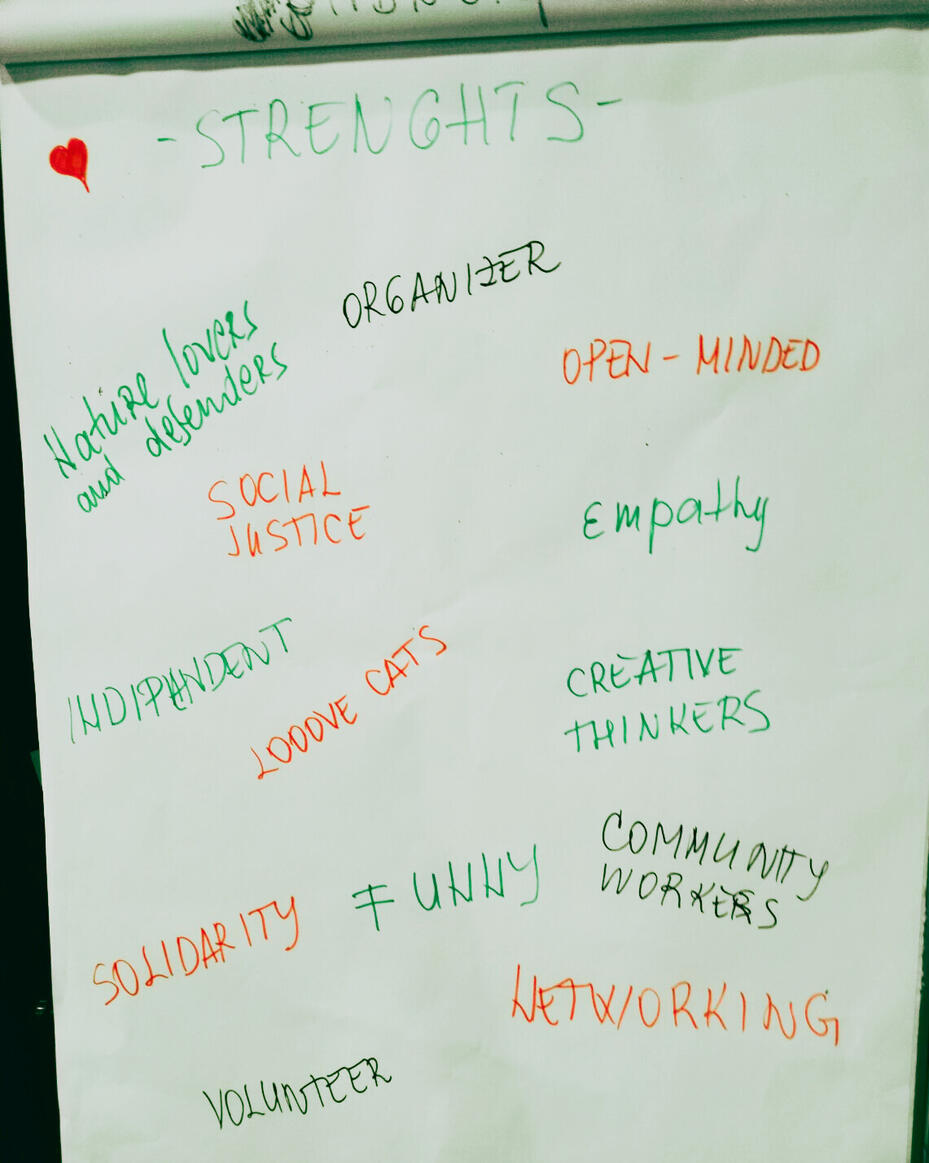 -STRENGHTS-
ORGANIZER
Nature lovers
and defenders
OPEN-MINDED
SOCIAL
JUSTICE
Empathy
INDIPENDENT
LOOOVE CATS
CREATIVE
THINKERS
COMMUNITY
WORKERS
FUNNY
SOLIDARITY
NETWORKING
VOLUNTEER